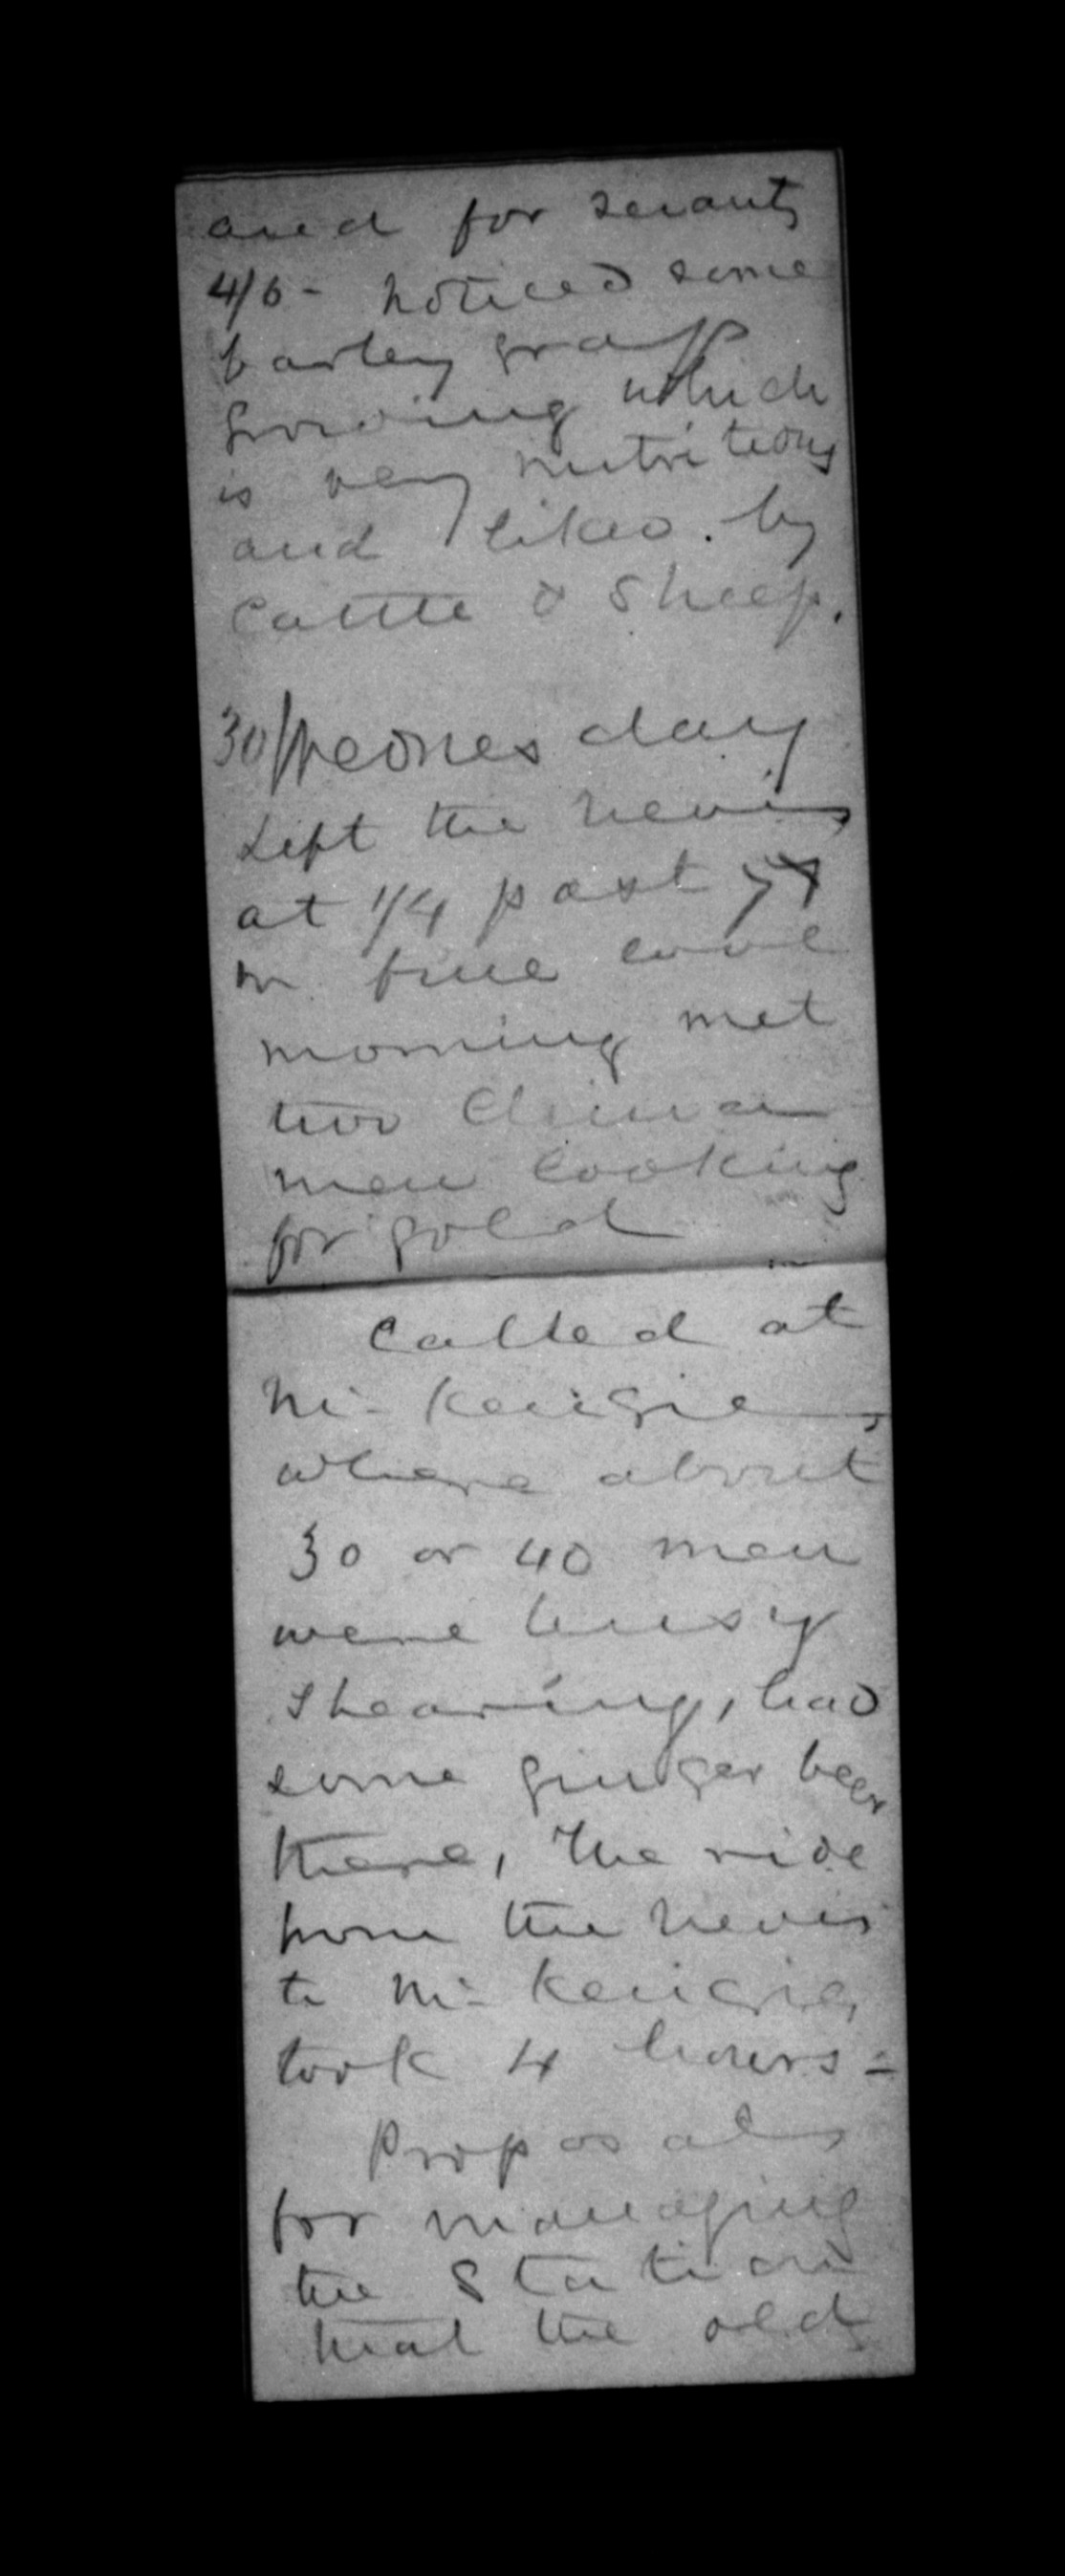 and for servants
4/6 - noticed some
barley grass
growing which
is very nutritious
and liked . by
Cattle & Sheep.
30/Wednesday
Left the nevis
at 1/4 past 7
in fine cool
morning met
two China
men looking
for gold
Called at
Mc Kenzies
where about
30 or 40 men
were busy
shearing, had
some ginger beer
there, The ride
from the nevis
to Mc Kenzies
took 4 hours -
Proposals
for managing
the Station
that the old